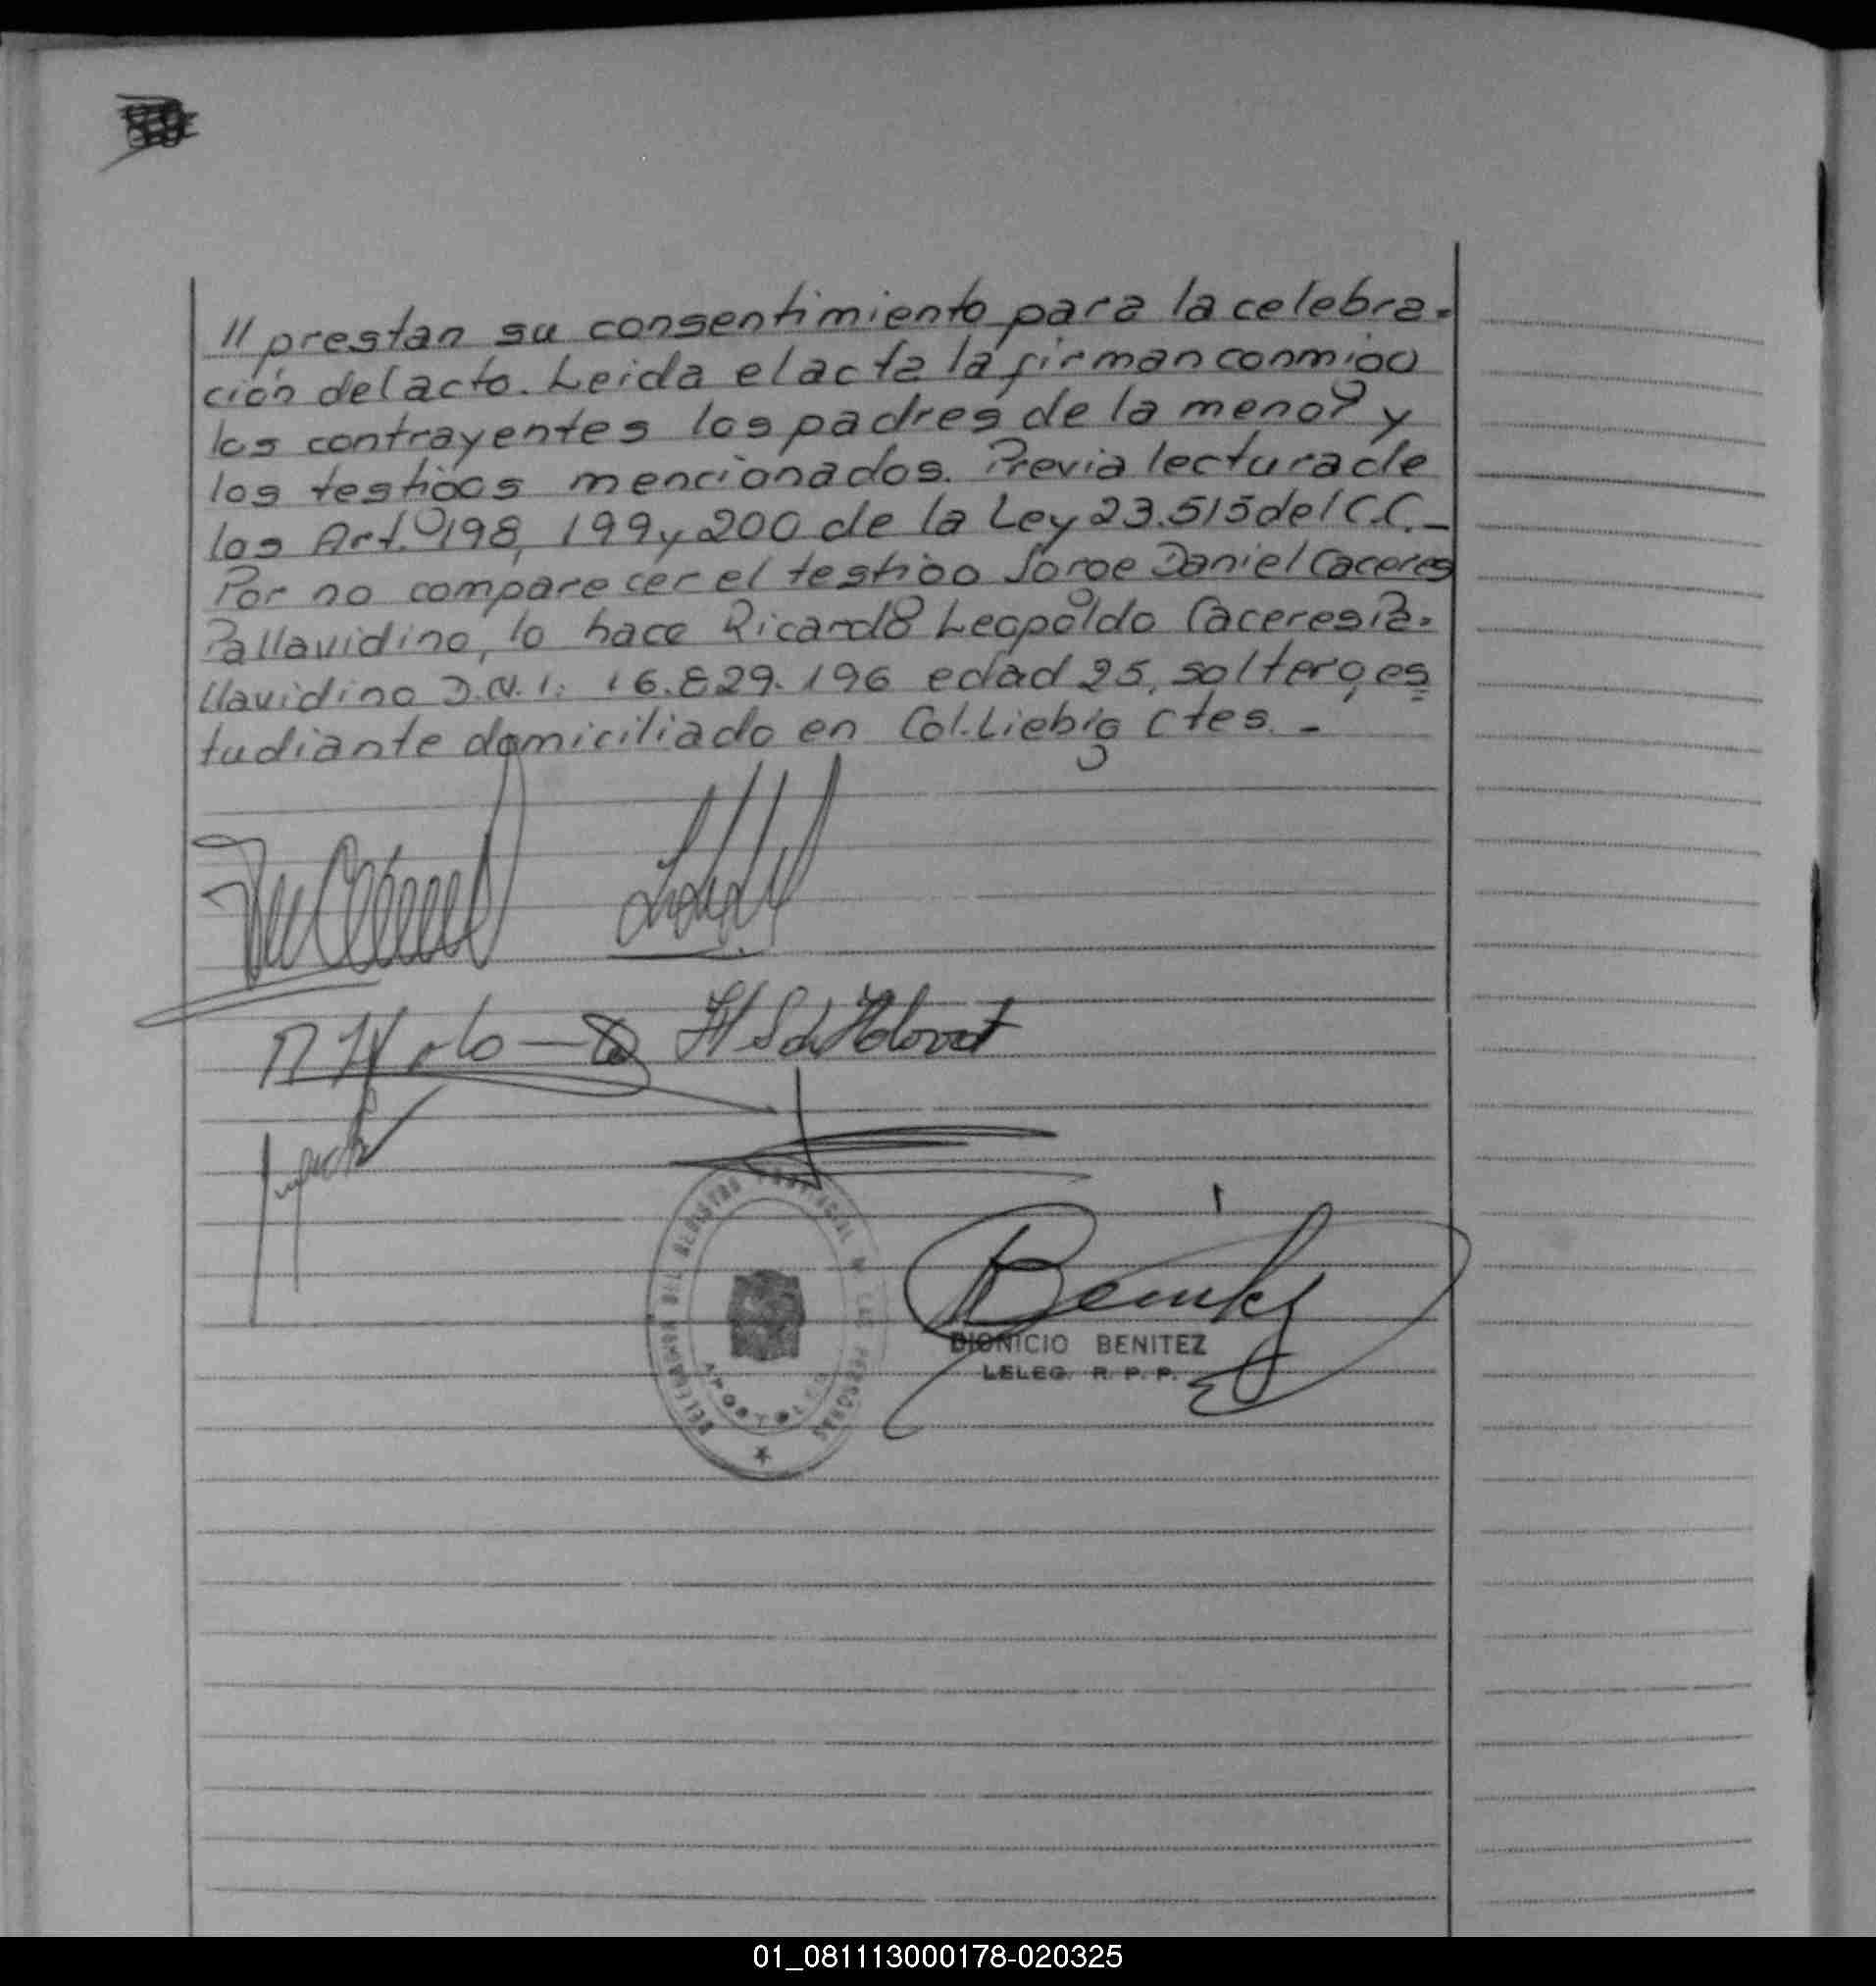 // prestan su consentimiento para la celebra-
ción del acto. Leida el acta la firman conmigo
los contrayentes los padres de la menor y
los testigos mencionados. Previa lectura de
los Art.º 198, 199 y 200 de la Ley 23.515 del C.C. -
Por no comparecer el testigo Jorge Daniel Caceres
Pallavidino, lo hace Ricardo Leopoldo Caceres Pa-
llavidino D.N.I: 16.829.196 edad 25, soltero, es
tudiante domiciliado en Col. Liebig Ctes. -
DELEGADO DEL REGISTRO PROVINCIAL DE LAS PERSONAS
APOSTOLES
Benitez
DIONICIO BENITEZ
DELEG. R. P. P.
01_081113000178-020325